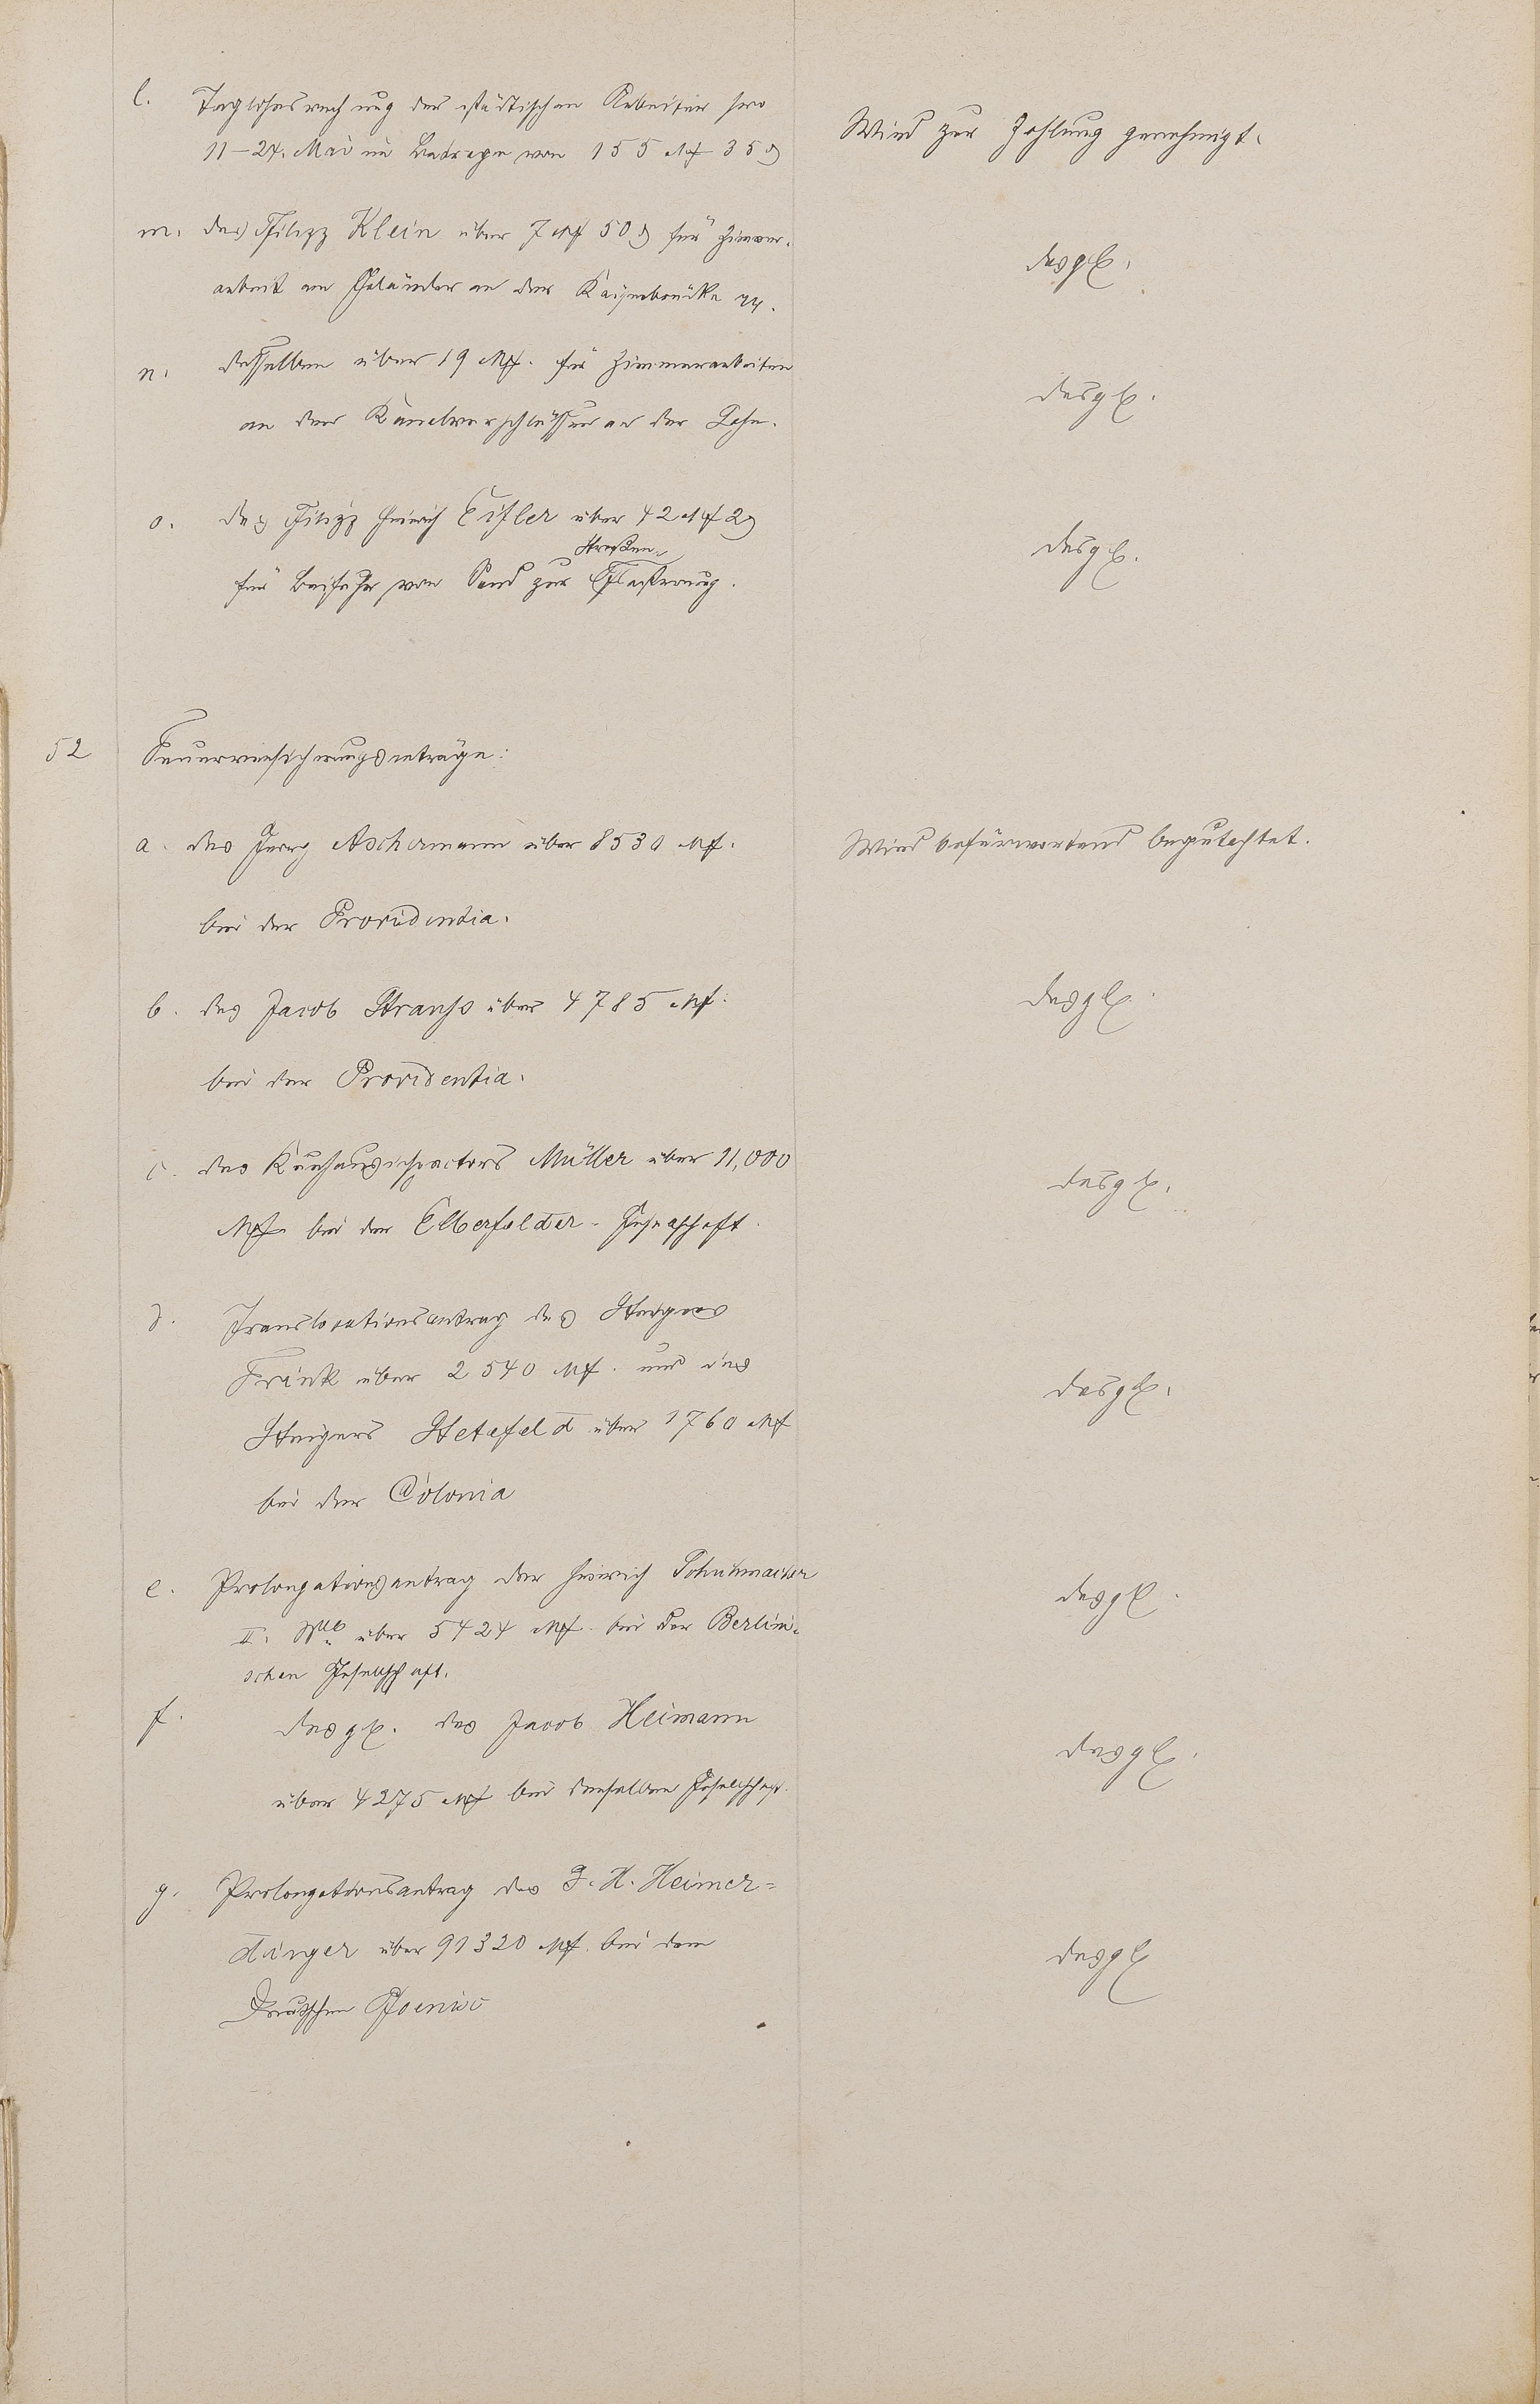 l. Taglohnrechnung der städtischen Arbeiter pro
11–24. Mai im Betrage von 155 Mk 35 ₰
Wird zur Zahlung genehmigt.
m. des Filipp Klein über 7 Mk 50 ₰ für Zimmer-
arbeit am Geländer an der Kaiserbrücke
desgl.
n. desselben über 19 Mk. für Zimmerarbeiten
an den Kanalverschlüssen an der Lahn.
desgl.
o. des Filipp Heinrich Eifler über 42 Mk 2 ₰
Straßen-
für Beifuhr von Sand zur Pflasterung.
desgl.
52 Feuerversicherungsanträge:
a. des Georg Aschermann über 8530 Mk.
bei der Providentia.
Wird befürwortend begutachtet.
b. des Jacob Strauss über 4785 Mk.
bei der Providentia.
desgl.
c. des Kurhausinspectors Müller über 11,000
Mk. bei der Elberfelder-Gesellschaft.
desgl.
d. Translocationsantrag des Steigers
Frink über 2540 Mk. und des
Steigers Stetefeld über 1760 Mk
bei der Colonia
desgl.
e. Prolongationsantrag der Heinrich Schuhmacher
II. Wwe über 5424 Mk. bei der Berlini-
schen Gesellschaft.
desgl.
f. desgl. des Jacob Heimann
über 4275 Mk bei derselben Gesellschaft.
desgl.
g. Prolongationsantrag des F. H. Heimer=
dinger über 91320 Mk. bei dem
Deutschen Phoenix
desgl.